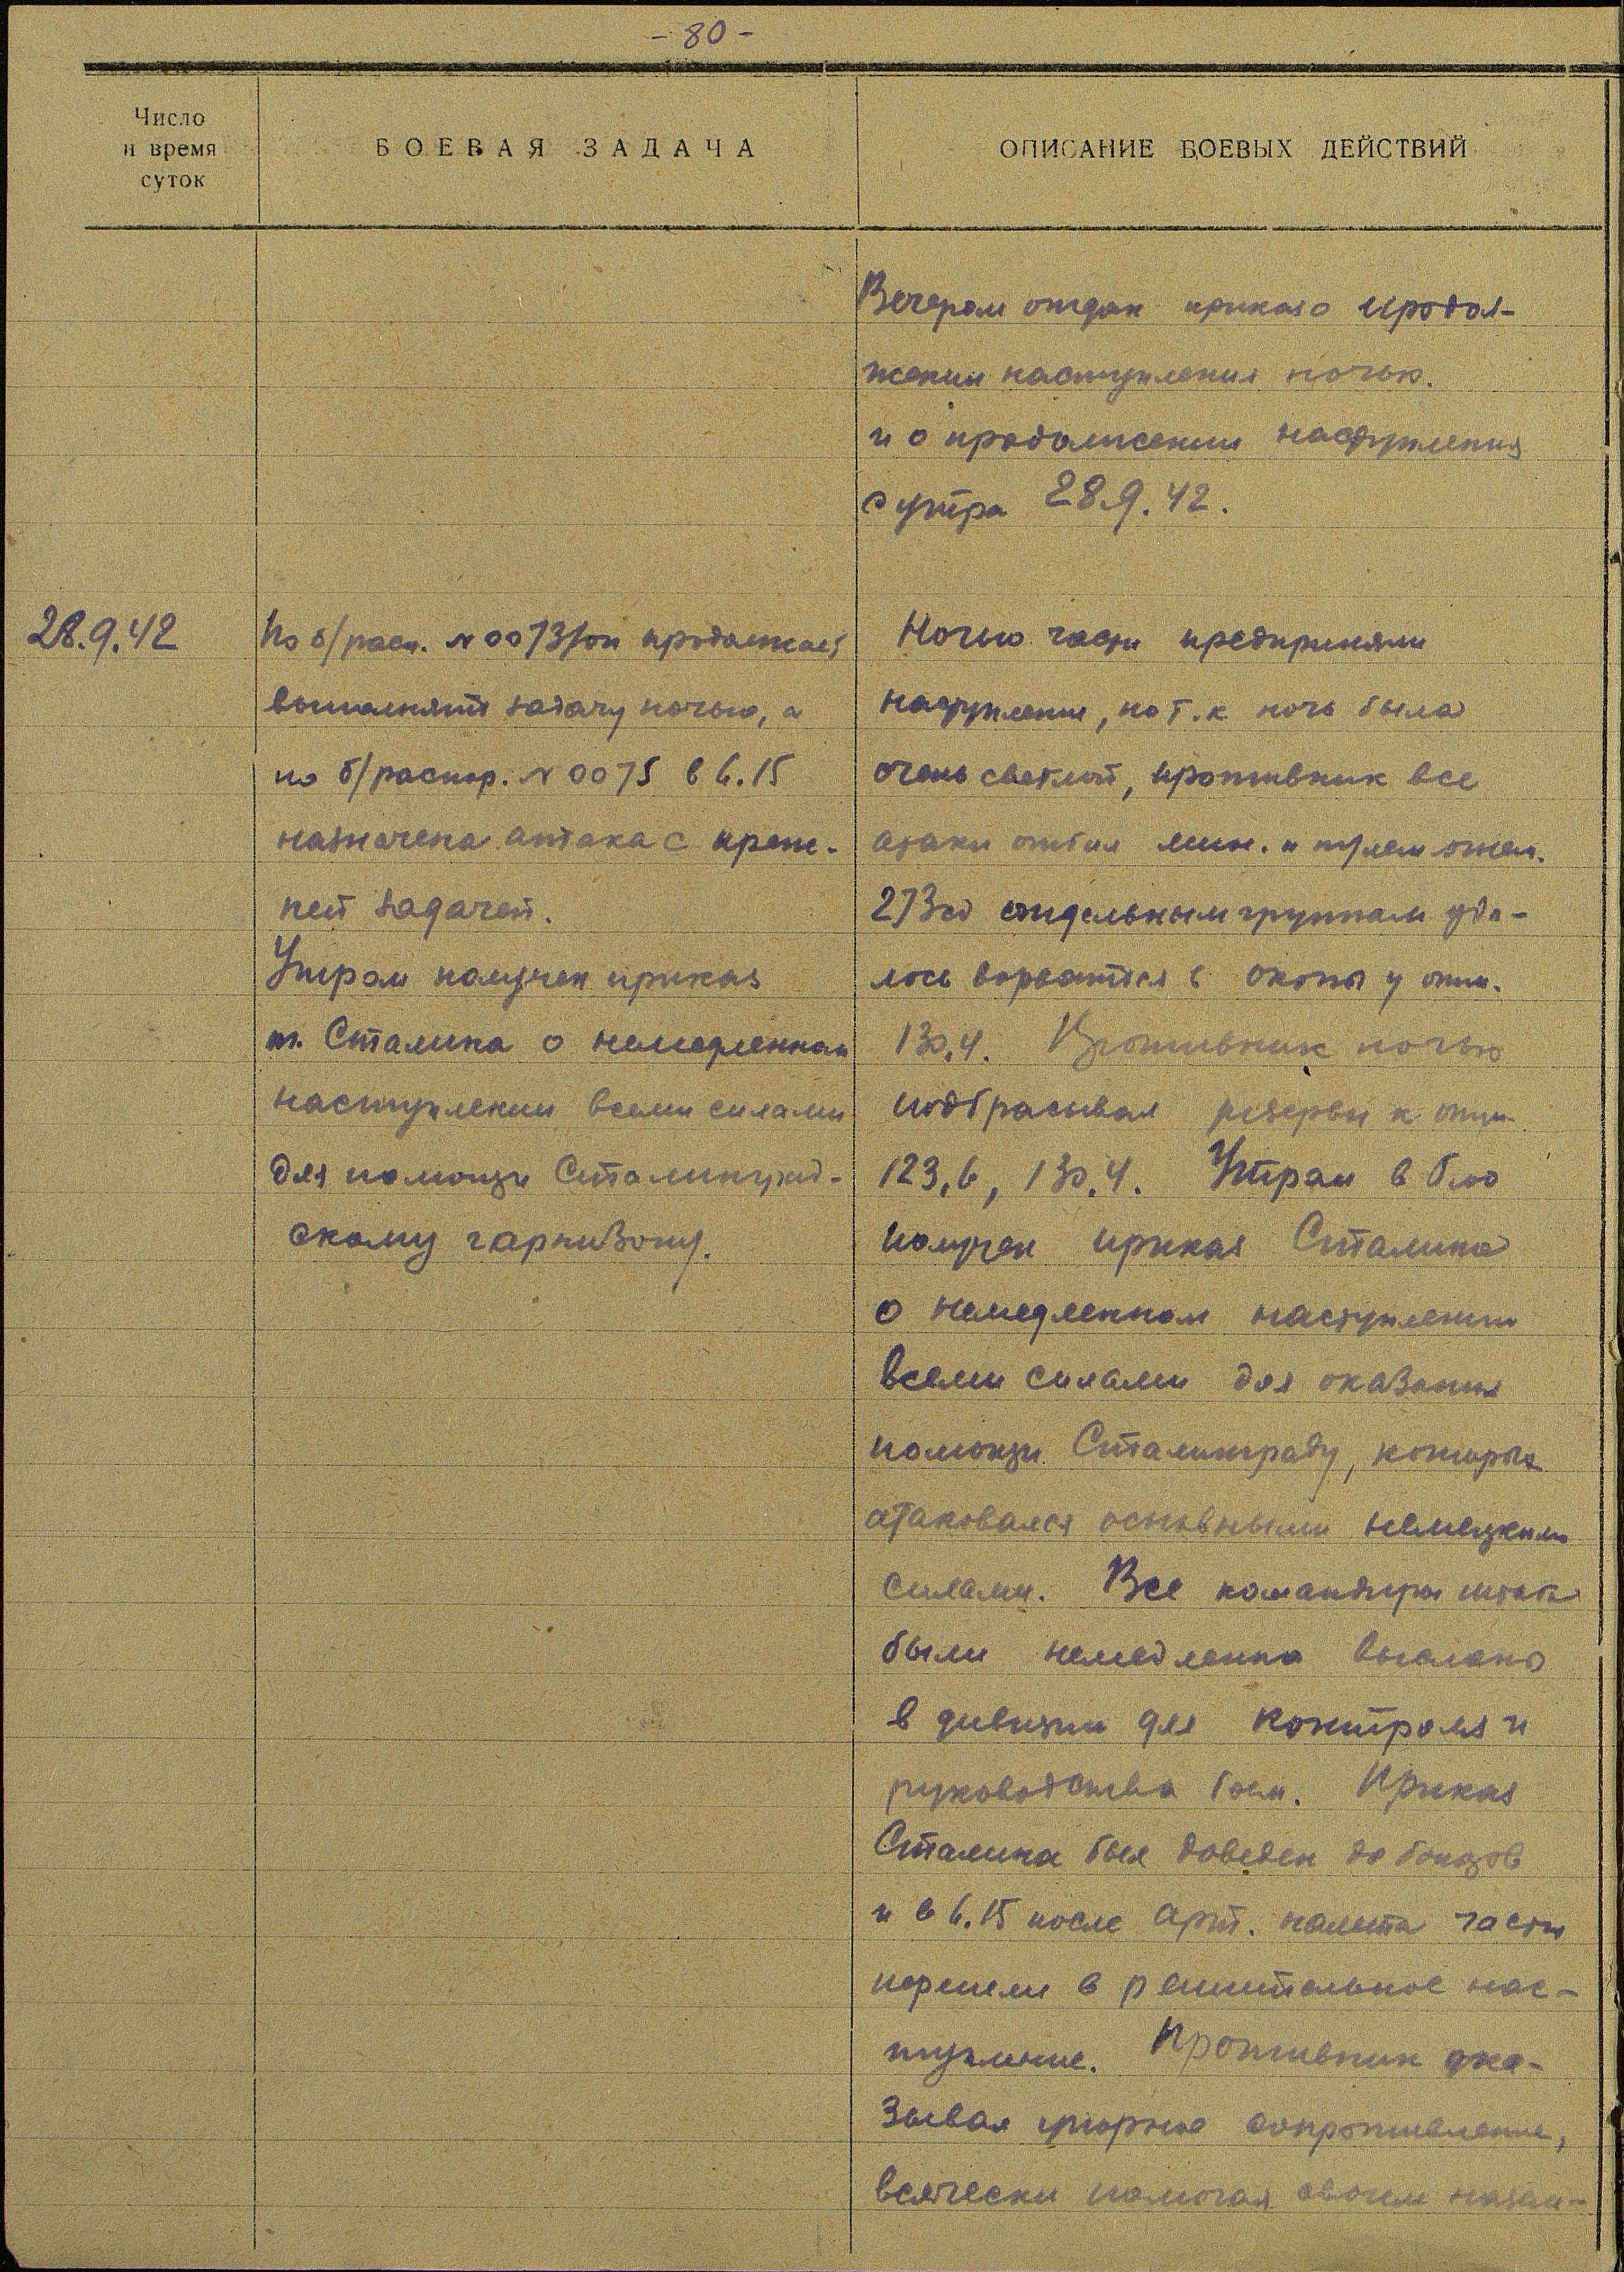 - 80 -
Число
и время
суток
БОЕВАЯ ЗАДАЧА
ОПИСАНИЕ БОЕВЫХ ДЕЙСТВИЙ
Вечером отдан приказ о продол-
жении наступления ночью.
и о продолжении наступления
с утра 28.9.42.
28.9.42
По б/расп. № 0073/оп продолжает
выполнять задачу ночью, а
по б/распор. № 0075 в 6.15
назначена аттака с преж-
ней задачей.
Утром получен приказ
т. Сталина о немедленном
наступлении всеми силами
для помощи Сталинград-
скому гарнизону.
Ночью части предприняли
наступление, но т.к ночь была
очень светлой, противник все
атаки отбил мин. и пулем огнем.
273сд отдельным группам уда-
лось ворваться в окопы у отм.
130,4. Противник ночью
подбрасывал резервы к отм.
123,6, 130,4. Утром в 6.00
получен приказ Сталина
о немедленном наступлении
всеми силами для оказания
помощи Сталинграду, который
атаковался основными немецкими
силами. Все командиры штаба
были немедленно высланы
в дивизии для контроля и
руководства боем. Приказ
Сталина был доведен до бойцов
и в 6.15 после арт. налета части
перешли в решительное нас-
тупление. Противник ока-
зывая упорное сопротивление,
всячески помогая своим